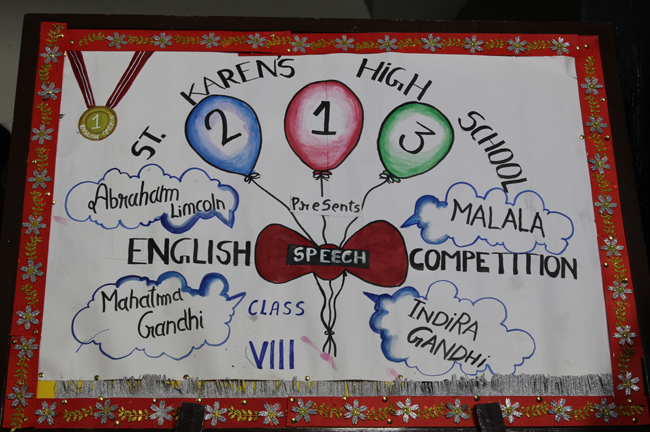 ST. KAREN'S HIGH SCHOOL
1
2 1 3
Presents
Abraham
Limcoln
MALALA
ENGLISH SPEECH COMPETITION
Mahatma
Gandhi
CLASS
VIII
INDIRA
GANDHi